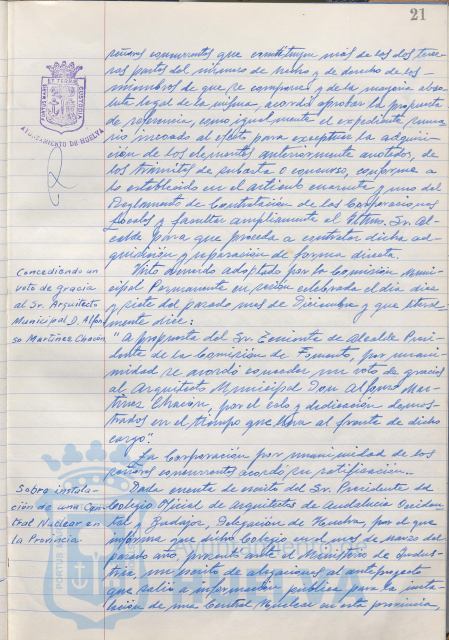 21
señores concurrentes que constituyen más de las dos terce-
ras partes del número de hecho y de derecho de los
miembros de que se compone y de la mayoría abso-
luta legal de la misma, acordó aprobar la propuesta
de referencia, como igualmente el expediente suma-
rio incoado al efecto para exceptuar la adquisi-
ción de los elementos anteriormente anotados, de
los trámites de subasta o concurso, conforme a
lo establecido en el artículo cuarenta y uno del
Reglamento de Contratación de las Corporaciones
Locales y facultar ampliamente al Iltmo. Sr. Al-
calde para que proceda a contratar dicha ad-
quisición y reparación de forma directa.
Concediendo un
voto de gracia
al Sr. Arquitecto
Municipal D. Alfon-
so Martínez Chacón
Visto acuerdo adoptado por la Comisión Muni-
cipal Permanente en sesión celebrada el día diez
y siete del pasado mes de Diciembre y que literal-
mente dice:
"A propuesta del Sr. Teniente de Alcalde Presi-
dente de la Comisión de Fomento, por unani-
midad se acordó conceder un voto de gracias
al Arquitecto Municipal Don Alfonso Mar-
tínez Chacón, por el celo y dedicación demos-
trados en el tiempo que lleva al frente de dicho
cargo".
La Corporación por unanimidad de los
señores concurrentes acordó su ratificación.
Sobre instala-
ción de una Cen-
tral Nuclear en
la Provincia
Dada cuenta de escrito del Sr. Presidente del
Colegio Oficial de Arquitectos de Andalucía Occiden-
tal y Badajoz, Delegación de Huelva, por el que
informa que dicho Colegio en el mes de marzo del
pasado año, presentó ante el Ministerio de Indus-
tria, un escrito de alegaciones al anteproyecto
que salió a información pública para la insta-
lación de una Central Nuclear en esta provincia,
AYUNTAMIENTO DE HUELVA
PORTUS MARIS
ET TERRAE
CUSTODIA
HUELVA